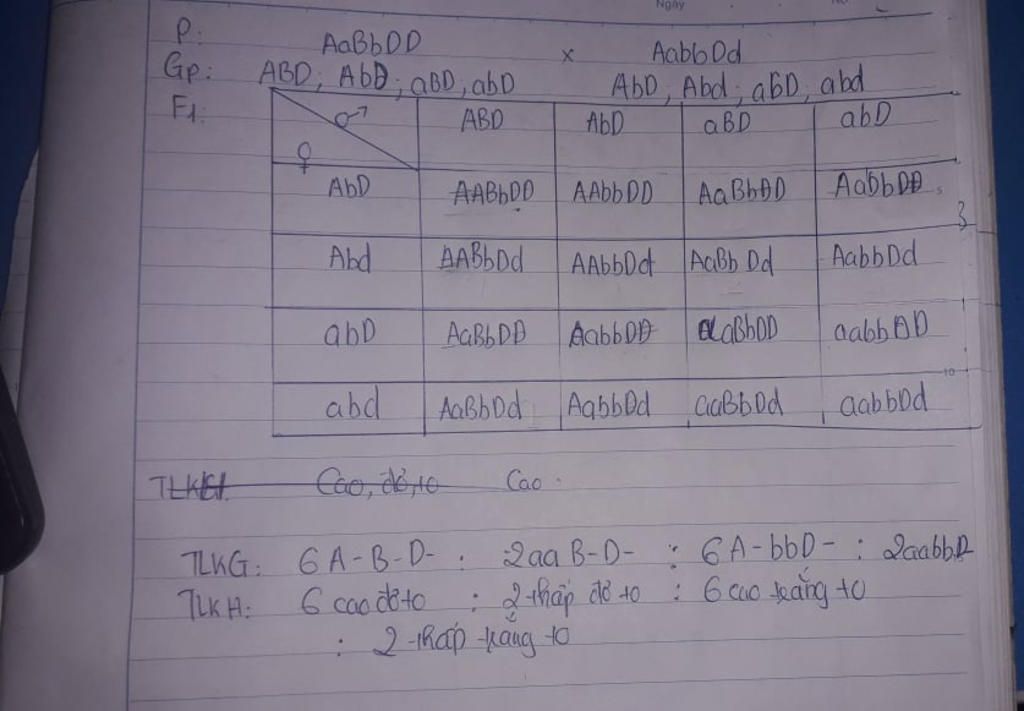 Ngày
No
P: AaBbDD × AabbDd
Gp: ABD; AbD; aBD; abD AbD; Abd; abD; abd
F1:
♂ ABD AbD aBD abD
♀
AbD AABbDD AAbbDD AaBbDD AabbDD
Abd AABbDd AAbbDd AaBbDd AabbDd
abD AaBbDD AabbDD aaBbDD aabbDD
abd AaBbDd AabbDd aaBbDd aabbDd
Cao, đỏ, to Cao
TLKG: 6 A-B-D- : 2aaB-D- : 6 A-bbD- : 2aabbD
TLKH: 6 cao đỏ to : 2 thấp đỏ to : 6 cao trắng to
: 2 thấp trắng to